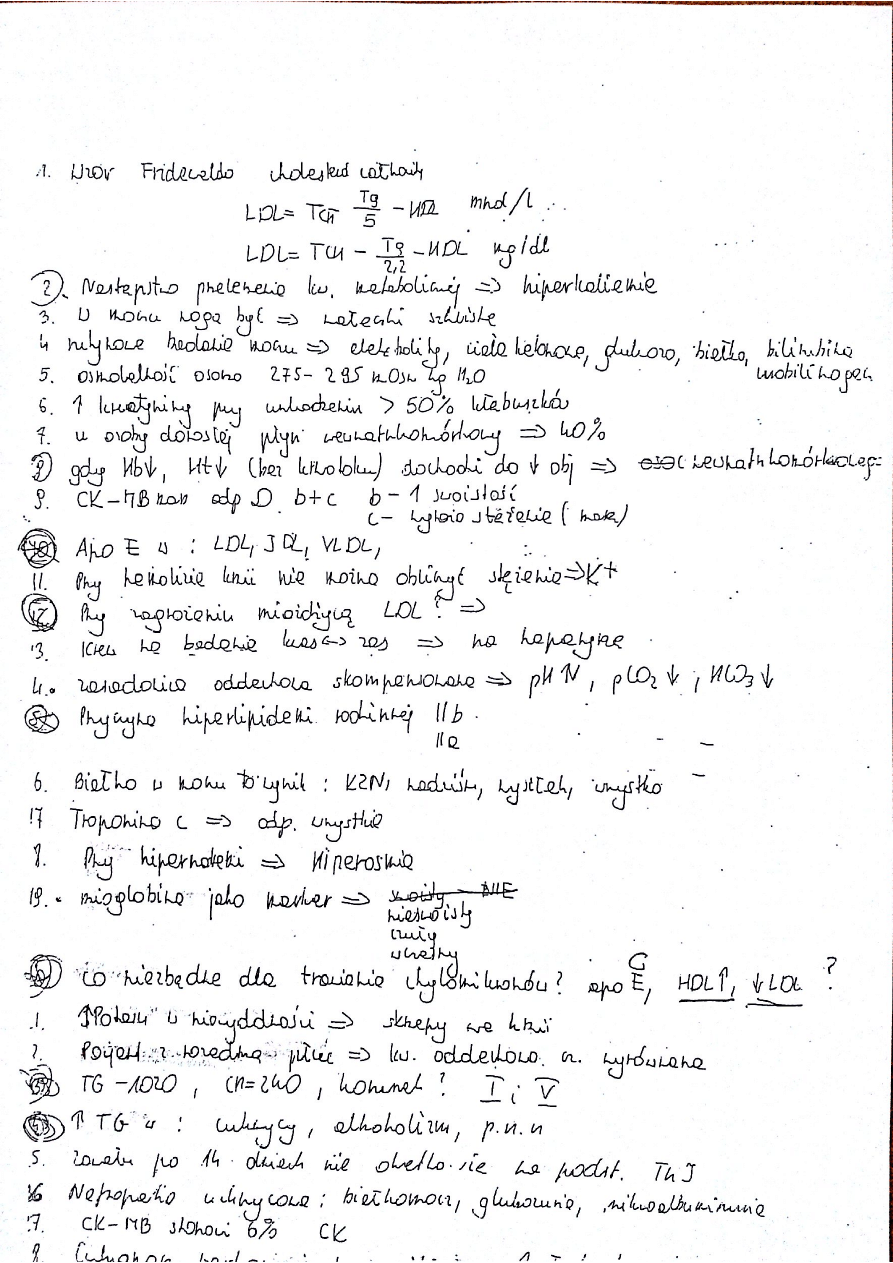 1. Wzór Fridewalda cholesterol całkowity
LDL = TCH Tg/5 - HDL mmol/l
LDL = TCH - Tg/2,2 - HDL mg/dl
2. Następstwo przełożenie kw. metabolicznej => hiperkaliemia
3. W moczu mogą być => wałeczki szkliste
4 rutynowe badanie moczu => elektrolity, ciała ketonowe, glukoza, białko, bilirubina
urobilinogen
5. osmolalność osocza 275-295 mOsm/kg H2O
6. ↑ kreatyniny przy uszkodzeniu > 50% kłębuszków
7. u osoby dorosłej płyn wewnątrzkomórkowy => 40%
8 gdy Hb↓, Ht↓ (bez krwotoku) dochodzi do ↓ obj => wewnątrzkomórkowego
9. CK-MB mass odp D b+c b - ↑ swoistość
c - stężenie (masa)
10 Apo E w : LDL, IDL, VLDL,
11. Przy hemolizie krwi nie można obliczyć stężenie => K+
12 Przy zagrożeniu miażdżycą LDL? =>
13. Krew na badanie kwas <-> zas => na heparynę
4.. zasadowica oddechowa skompensowana => pH N, pCO2↓, HCO3↓
Przyczyna hiperlipidemi rodzinnej IIb.
IIa
6. Białko w moczu to wynik : KZN, wysiłek, wszystko
17 Troponina C => odp. wszystkie
8. Przy hipernatremi => Hiperosmia
19. . mioglobina jako marker =>
nieswoisty
czuły
wczesny
Co niezbędne dla trawienia chylomikronów? apo C E, HDL↑, ↓LDL ?
1. ↑Potasu w niewydolności => skrzepy we krwi
2. Pacjent z niewydolną płuc => kw. oddechowa n. wyrównana
TG - 1020, CH=240, hominet? I i V
↑TG w : cukrzycy, alkoholizm, p.n.n
5. zawału po 14 dniach nie określa się na podst. TnI
16 Nefropatia cukrzycowa : białkomocz, glukozuria, mikroalbuminuria
7. CK-MB stanowi 6% CK